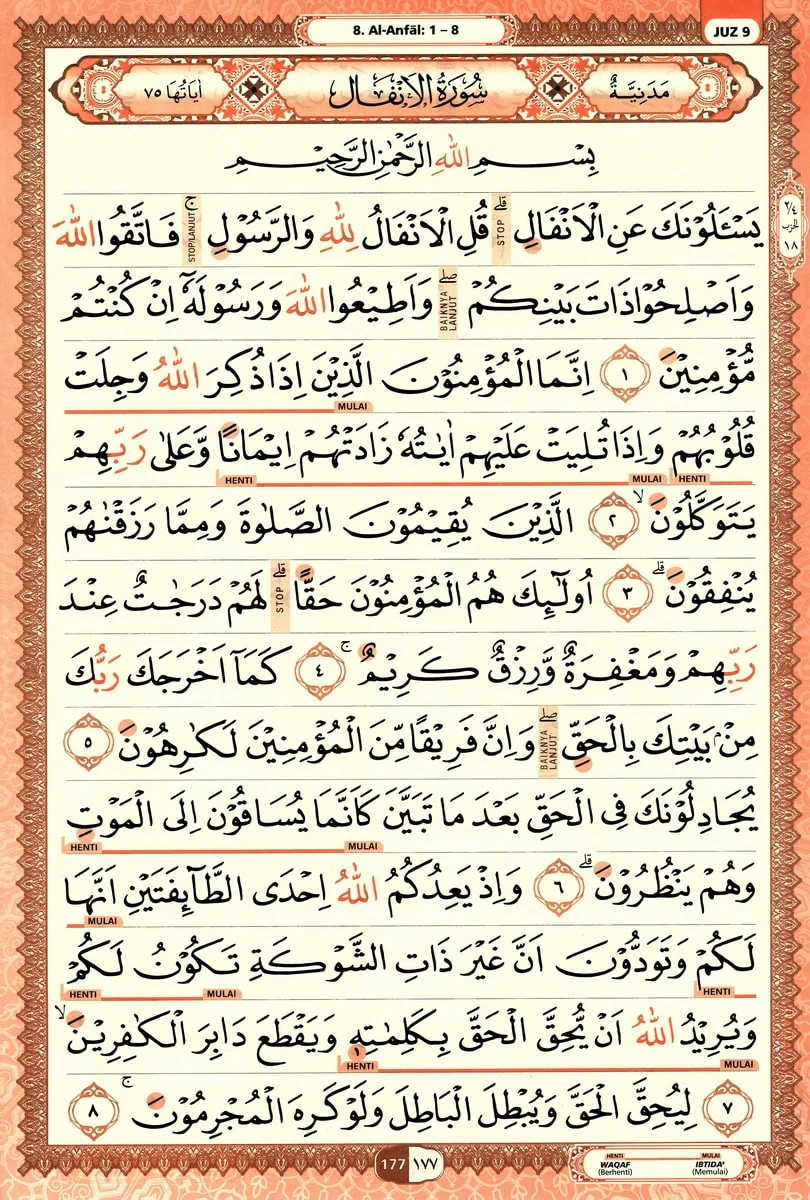 8. Al-Anfāl: 1 – 8
JUZ 9
مَدَنِيَّةٌ سُوْرَةُ الْاَنْفَالِ اٰيَاتُهَا ٧٥
بِسْمِ اللّٰهِ الرَّحْمٰنِ الرَّحِيْمِ
٢/٤ الحزب ١٨
يَسْـَٔلُوْنَكَ عَنِ الْاَنْفَالِ ۗ قُلِ الْاَنْفَالُ لِلّٰهِ وَالرَّسُوْلِ ۚ فَاتَّقُوا اللّٰهَ
STOP
STOP/LANJUT
وَاَصْلِحُوْا ذَاتَ بَيْنِكُمْ ۖ وَاَطِيْعُوا اللّٰهَ وَرَسُوْلَهٗٓ اِنْ كُنْتُمْ
BAIKNYA LANJUT
مُّؤْمِنِيْنَ ١ اِنَّمَا الْمُؤْمِنُوْنَ الَّذِيْنَ اِذَا ذُكِرَ اللّٰهُ وَجِلَتْ
MULAI
قُلُوْبُهُمْ وَاِذَا تُلِيَتْ عَلَيْهِمْ اٰيٰتُهٗ زَادَتْهُمْ اِيْمَانًا وَّعَلٰى رَبِّهِمْ
HENTI MULAI HENTI
يَتَوَكَّلُوْنَ ۙ ٢ الَّذِيْنَ يُقِيْمُوْنَ الصَّلٰوةَ وَمِمَّا رَزَقْنٰهُمْ
يُنْفِقُوْنَ ۗ ٣ اُولٰۤىِٕكَ هُمُ الْمُؤْمِنُوْنَ حَقًّا ۗ لَهُمْ دَرَجٰتٌ عِنْدَ
STOP
رَبِّهِمْ وَمَغْفِرَةٌ وَّرِزْقٌ كَرِيْمٌ ۚ ٤ كَمَآ اَخْرَجَكَ رَبُّكَ
مِنْۢ بَيْتِكَ بِالْحَقِّ ۖ وَاِنَّ فَرِيْقًا مِّنَ الْمُؤْمِنِيْنَ لَكٰرِهُوْنَ ٥
BAIKNYA LANJUT
يُجَادِلُوْنَكَ فِى الْحَقِّ بَعْدَ مَا تَبَيَّنَ كَاَنَّمَا يُسَاقُوْنَ اِلَى الْمَوْتِ
HENTI MULAI
وَهُمْ يَنْظُرُوْنَ ۗ ٦ وَاِذْ يَعِدُكُمُ اللّٰهُ اِحْدَى الطَّاۤىِٕفَتَيْنِ اَنَّهَا
MULAI
لَكُمْ وَتَوَدُّوْنَ اَنَّ غَيْرَ ذَاتِ الشَّوْكَةِ تَكُوْنُ لَكُمْ
HENTI MULAI HENTI
وَيُرِيْدُ اللّٰهُ اَنْ يُّحِقَّ الْحَقَّ بِكَلِمٰتِهٖ وَيَقْطَعَ دَابِرَ الْكٰفِرِيْنَ ۙ
HENTI MULAI
٧ لِيُحِقَّ الْحَقَّ وَيُبْطِلَ الْبَاطِلَ وَلَوْ كَرِهَ الْمُجْرِمُوْنَ ۚ ٨
177 ١٧٧
HENTI MULAI
WAQAF IBTIDA'
(Berhenti) (Memulai)